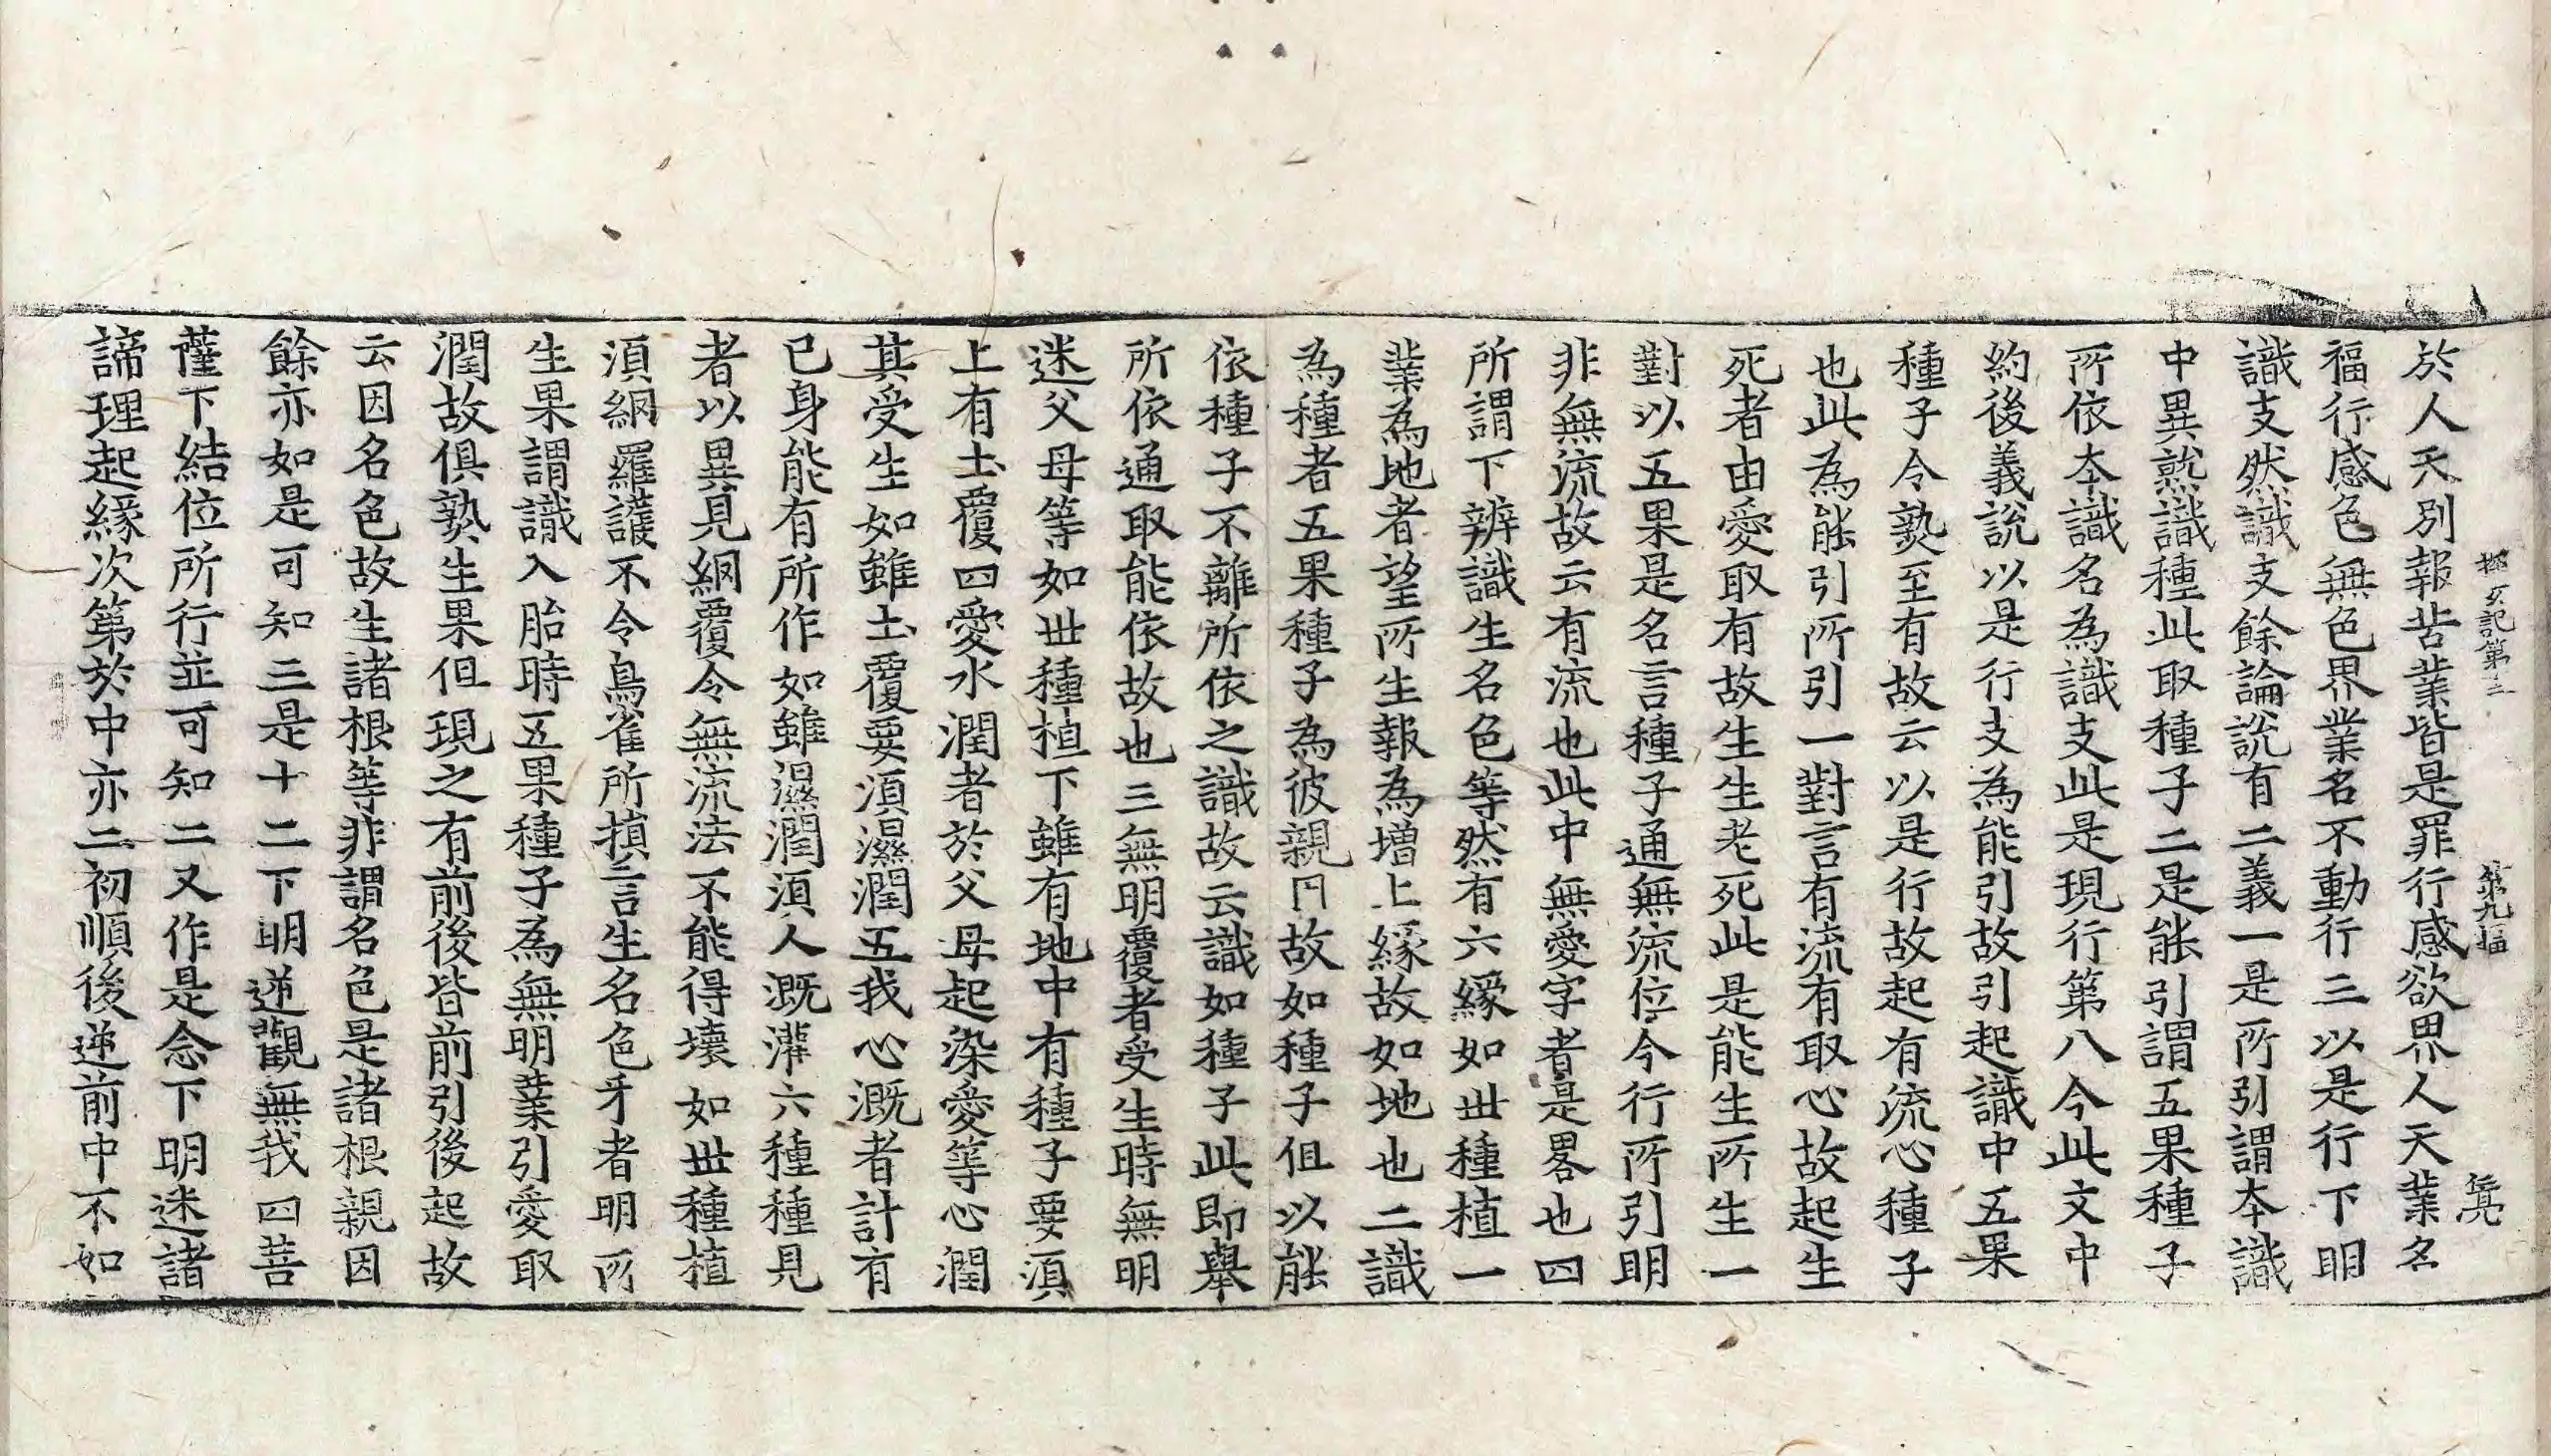 探玄記第十三 第九幅
於人天別報苦業皆是罪行感欲界人天業名
福行感色無色界業名不動行三以是行下明
識支然識支餘論說有二義一是所引謂本識
中異熟識種此取種子二是能引謂五果種子
所依本識名為識支此是現行第八今此文中
約後義說以是行支為能引故引起識中五果
種子令熟至有故云以是行故起有流心種子
也此為能引所引一對言有流有取心故起生
死者由愛取有故生生老死此是能生所生一
對以五果是名言種子通無流位今行所引明
非無流故云有流也此中無愛字者是畧也四
所謂下辨識生名色等然有六緣如世種植一
業為地者望所生報為增上緣故如地也二識
為種者五果種子為彼親因故如種子但以能
依種子不離所依之識故云識如種子此即舉
所依通取能依故也三無明覆者受生時無明
迷父母等如世種植下雖有地中有種子要須
上有土覆四愛水潤者於父母起染愛等心潤
其受生如雖土覆要須濕潤五我心溉者計有
已身能有所作如雖濕潤須人溉灌六種種見
者以異見網覆令無流法不能得壞如世種植
須網羅護不令鳥雀所損言生名色牙者明所
生果謂識入胎時五果種子為無明業引愛取
潤故俱熟生果但現之有前後皆前引後起故
云因名色故生諸根等非謂名色是諸根親因
餘亦如是可知三是十二下明逆觀無我四菩
薩下結位所行並可知二又作是念下明迷諸
諦理起緣次第於中亦二初順後逆前中不如